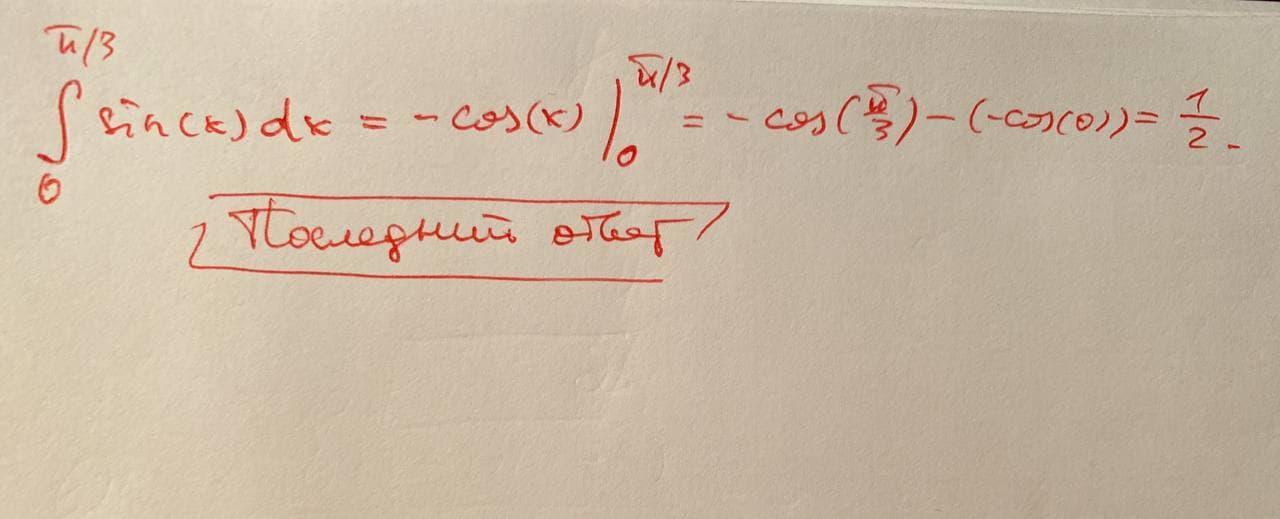 ∫₀^{π/3} sin(x) dx = -cos(x) |₀^{π/3} = -cos(π/3) - (-cos(0)) = 1/2.
Последний ответ